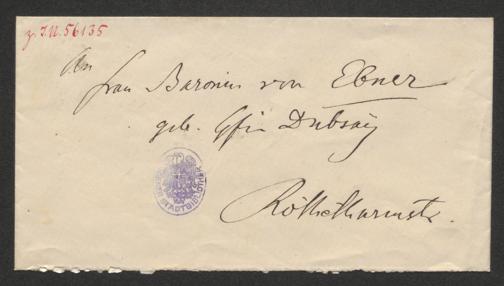 z. J.N. 56135
An
Frau Baronin von Ebner
geb. Gfin Dubsky
Rothethurmstr.